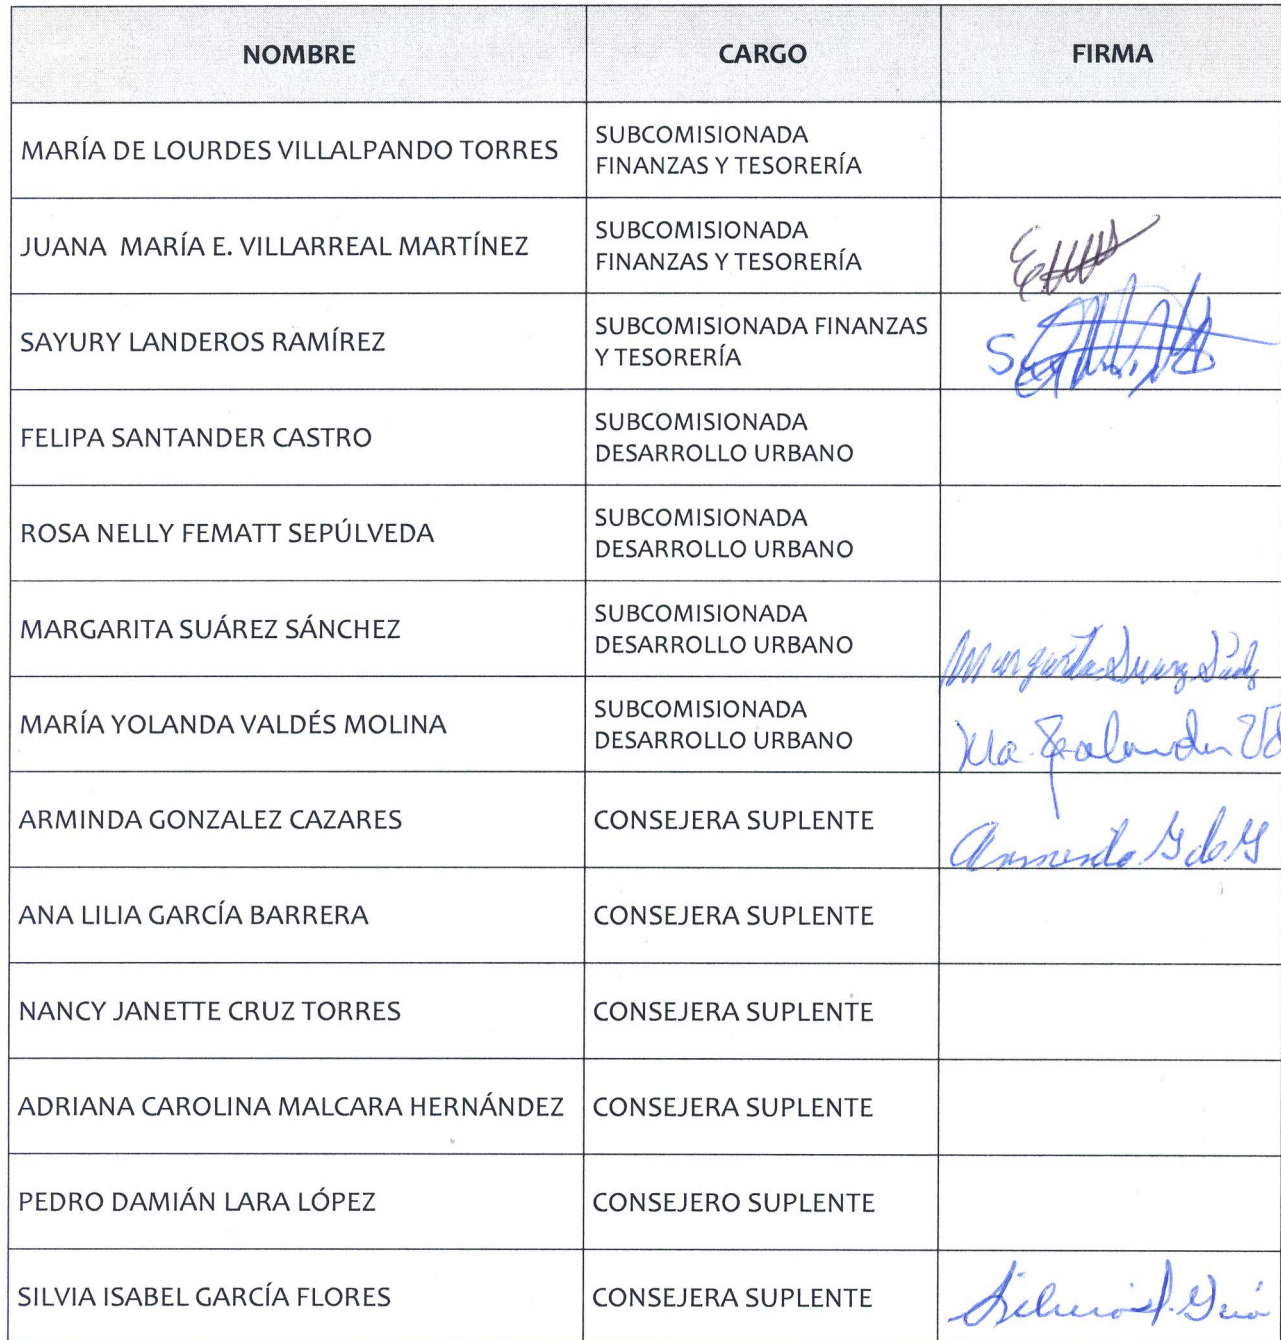 NOMBRE CARGO FIRMA
MARÍA DE LOURDES VILLALPANDO TORRES
SUBCOMISIONADA
FINANZAS Y TESORERÍA
JUANA MARÍA E. VILLARREAL MARTÍNEZ
SUBCOMISIONADA
FINANZAS Y TESORERÍA
SAYURY LANDEROS RAMÍREZ
SUBCOMISIONADA FINANZAS
Y TESORERÍA
FELIPA SANTANDER CASTRO
SUBCOMISIONADA
DESARROLLO URBANO
ROSA NELLY FEMATT SEPÚLVEDA
SUBCOMISIONADA
DESARROLLO URBANO
MARGARITA SUÁREZ SÁNCHEZ
SUBCOMISIONADA
DESARROLLO URBANO
Margarita Suarez
MARÍA YOLANDA VALDÉS MOLINA
SUBCOMISIONADA
DESARROLLO URBANO
Ma. Yolanda
ARMINDA GONZALEZ CAZARES CONSEJERA SUPLENTE
ANA LILIA GARCÍA BARRERA CONSEJERA SUPLENTE
NANCY JANETTE CRUZ TORRES CONSEJERA SUPLENTE
ADRIANA CAROLINA MALCARA HERNÁNDEZ CONSEJERA SUPLENTE
PEDRO DAMIÁN LARA LÓPEZ CONSEJERO SUPLENTE
SILVIA ISABEL GARCÍA FLORES CONSEJERA SUPLENTE